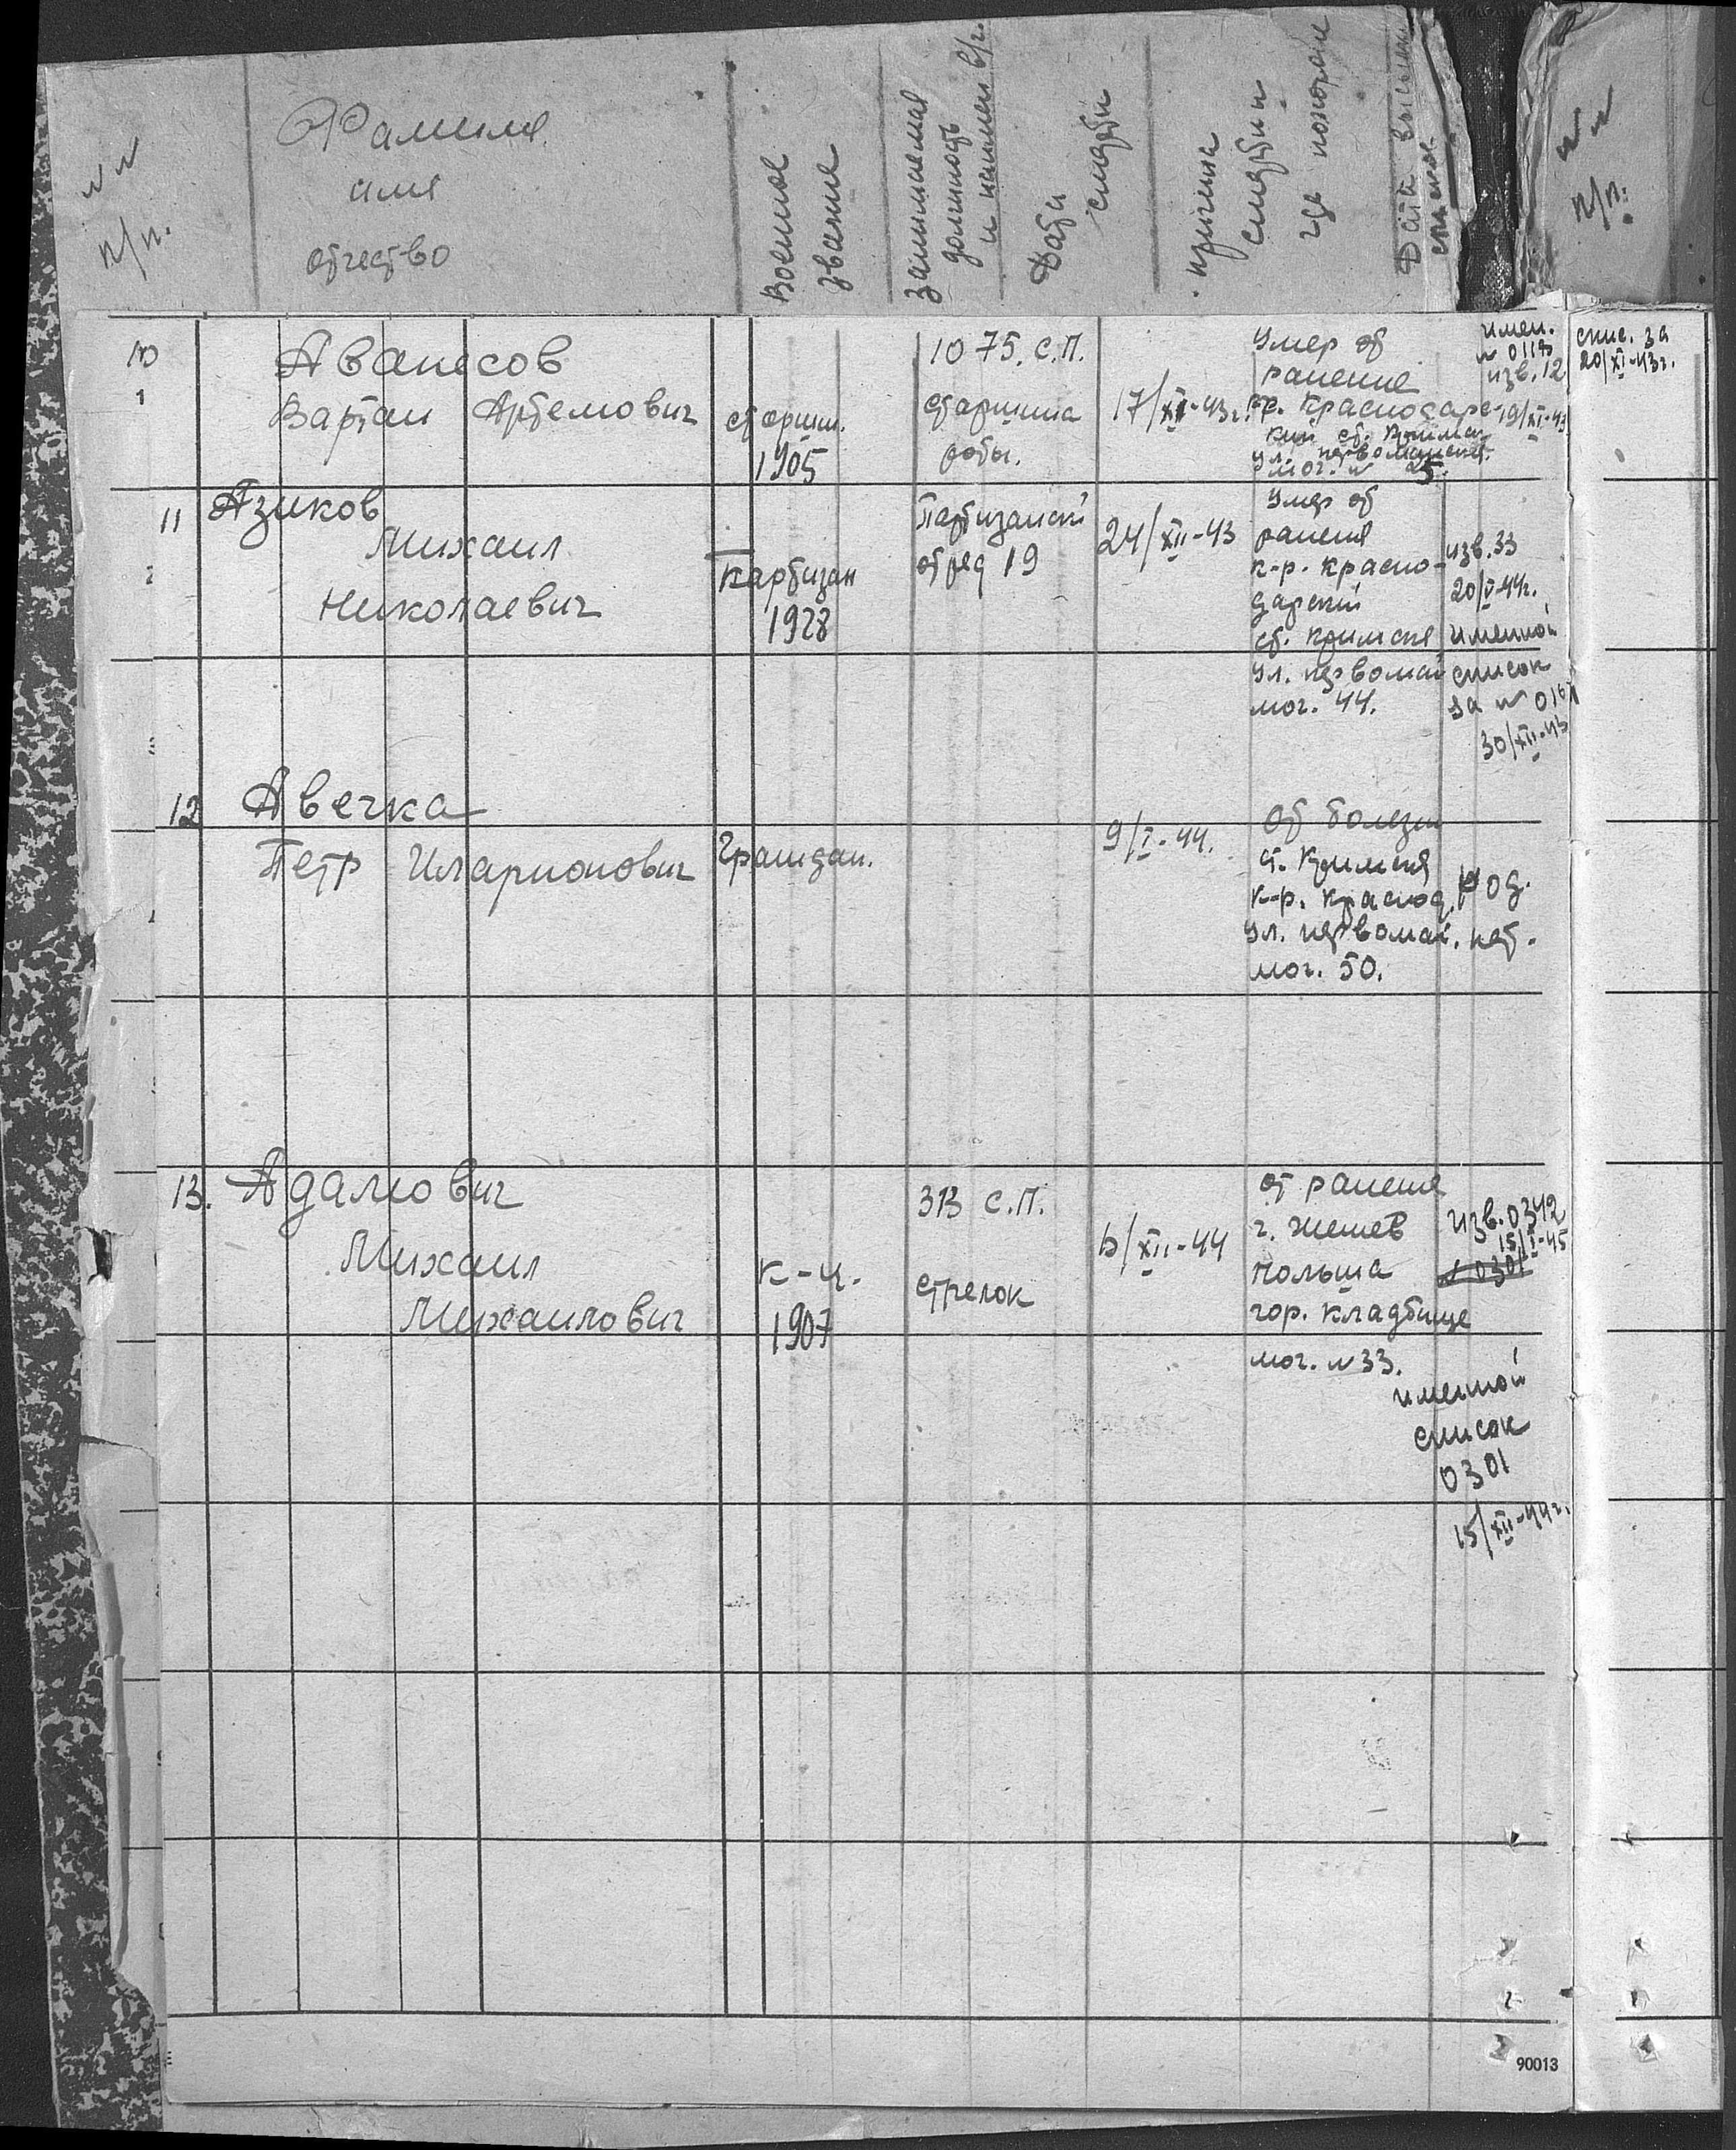 №№
п/п.
Фамилия
имя
отчество
Военное
звание
занимаемая
должность
и наимен в/ч.
Дата
смерти
причина
смерти и
где похоронен
Дата высылки
списков
№№
п/п.
10
Аванесов
Вартан Артемович
старшин.
1905
1075. С.П.
старшина
роты.
17/XI-43г.
Умер от
ранение
кр. Краснодарс-
кий ст. Крымск.
ул. первомайская
мог. №
имен.
изв. 12
19/XI-43
спис. за
20/XI-43г.
11
Азиков
Михаил
Николаевич
Партизан
1928
Партизанский
отред 19
24/XII-43
Умер от
раненя
к-р. Красно-
дарский
ст. Кримская
ул. первомай
мог. 44.
изв. 33
20/V-44г.
именной
список
за №
30/XII-43
12
Авечка
Петр Иларионович
Граждан.
9/I-44.
От болезни
ст. Кримская
к-р. Краснод.
ул. первомай.
мог. 50.
род.
нет.
13.
Адамович
Михаил
Михаилович
к-ц.
1907
313 С.П.
стрелок
6/XII-44
от раненя
г. Жешев
польша
гор. кладбище
мог. №33.
изв. 0342
15/I-45
0301
именной
список
0301
15/XII-44г.
90013